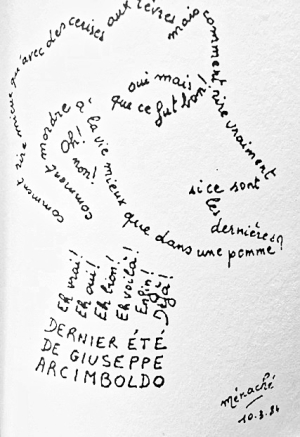 comment rire mieux qu'avec des cerises aux lèvres mais
comment rire vraiment
si ce sont
les
dernières ?
comment mordre à
la vie mieux que dans une pomme !
Oh !
non !
oui mais
que ce fut bon !
Eh vrai !
Eh oui !
Eh bien !
Eh voilà !
Enfin !
Déjà !
DERNIER ÉTÉ
DE GIUSEPPE
ARCIMBOLDO
Ménaché
10.3.84